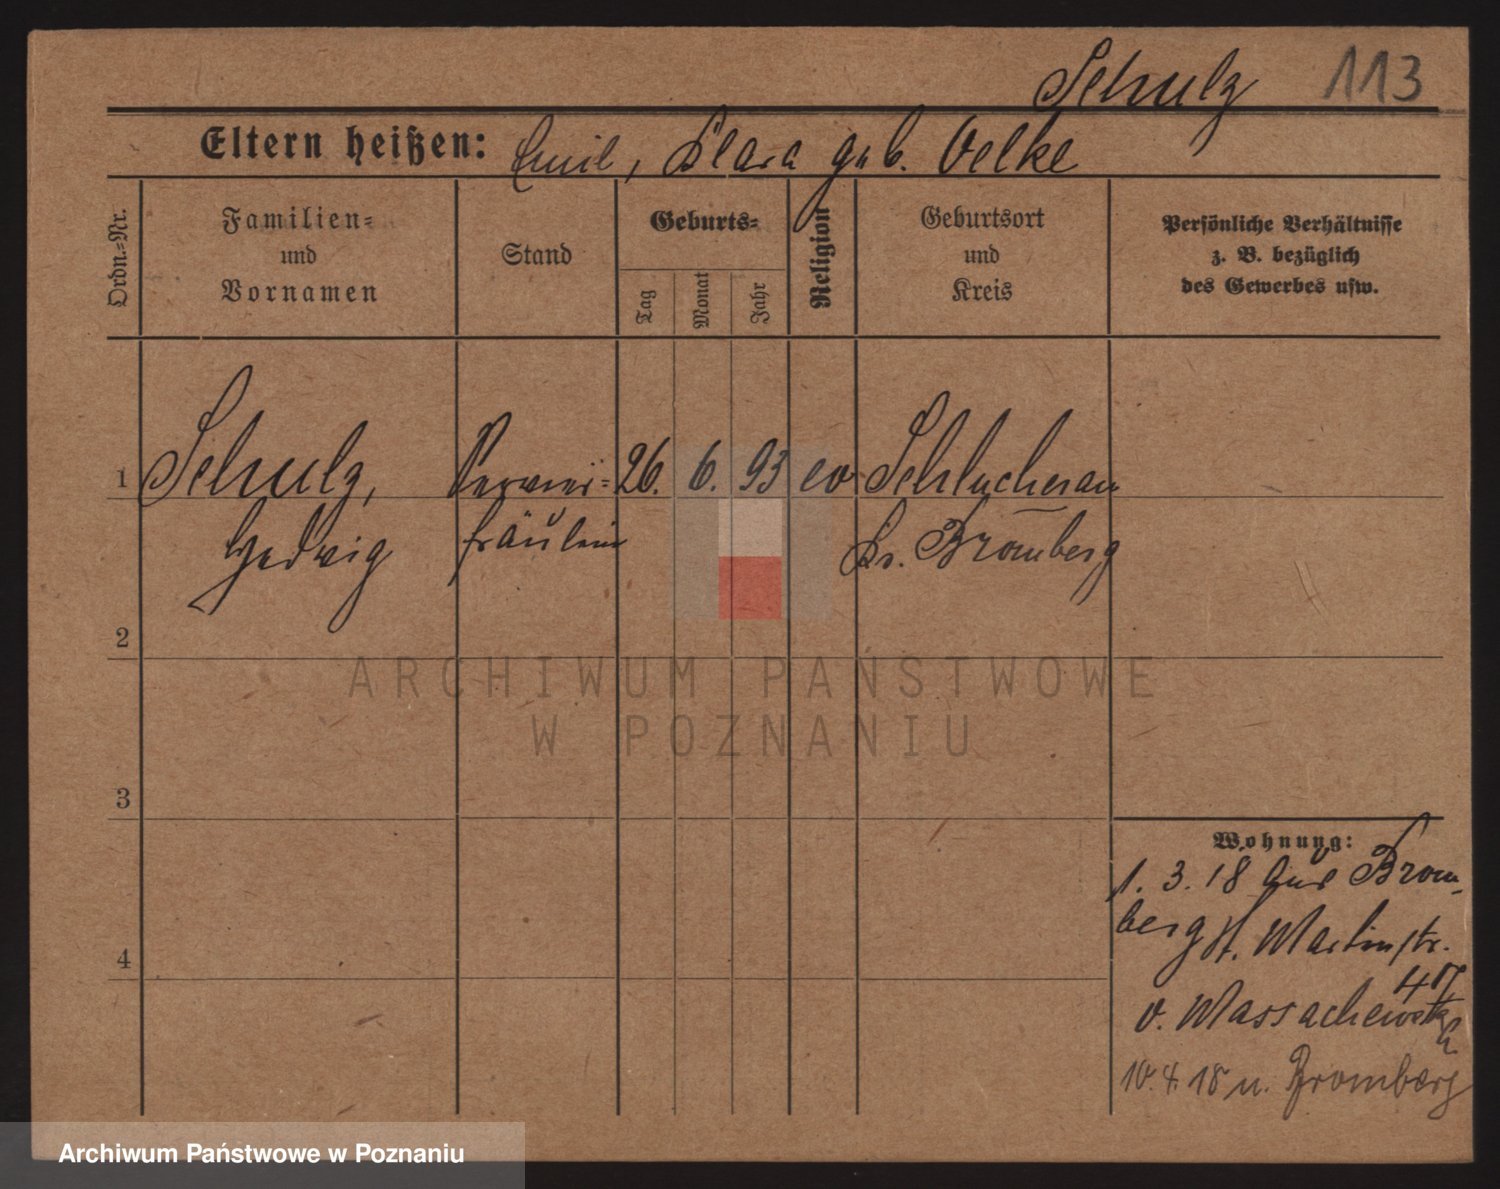 Schulz 113
Eltern heißen: Emil, Klara geb. Oelke
Ordn.=Nr.
Familien=
und
Vornamen
Stand
Geburts=
Tag
Monat
Jahr
Religion
Geburtsort
und
Kreis
Persönliche Verhältnisse
z. B. bezüglich
des Gewerbes usw.
1 Schulz, 26. 6. 93 ev
Hedwig fräulein Kr. Bromberg
2
3
4
Wohnung:
1. 3. 18 aus Brom-
berg St. Martinstr.
47
v.
10. 4. 18 n. Bromberg
ARCHIWUM PAŃSTWOWE
W POZNANIU
Archiwum Państwowe w Poznaniu